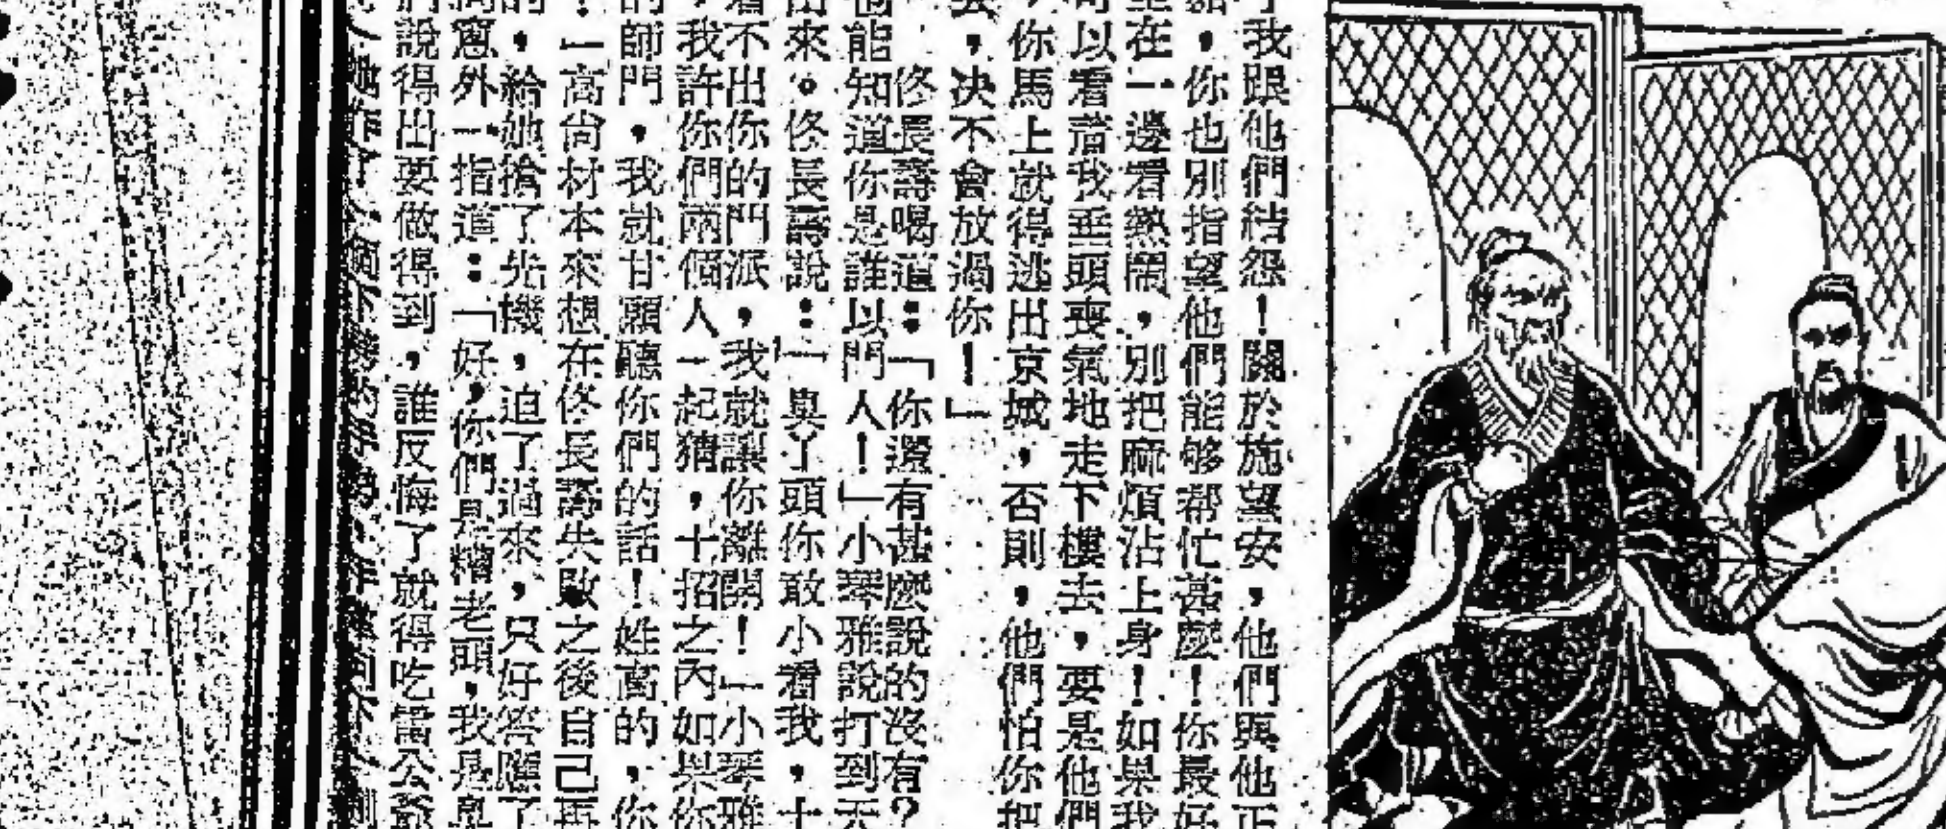 我跟他們結怨！關於施望安，他們與他正
，你也別指望他們能够帮忙甚麼！你最好
在一邊看熱鬧，別把麻煩沾上身！如果我
可以看着我垂頭喪氣地走下樓去，要是他們
，你馬上就得逃出京城，否則，他們怕你把
去，决不會放過你！」
修長壽喝道：「你還有甚麼說的沒有？
能知道你是誰以門人！」小琴雅說打到天
出來。佟長壽說：「臭丫頭你敢小看我，十
看不出你的門派，我就讓你離開！」小琴雅
，我許你們兩個人一起猜，十招之內如果你
的師門，我就甘願聽你們的話！姓高的，你
！」高尚材本來想在佟長壽失敗之後自己再
的，給她搶了先機，迫了過來，只好答應了
窗外一指道：「好，你們是糟老頭，我是臭
們說得出要做得到，誰反悔了就得吃